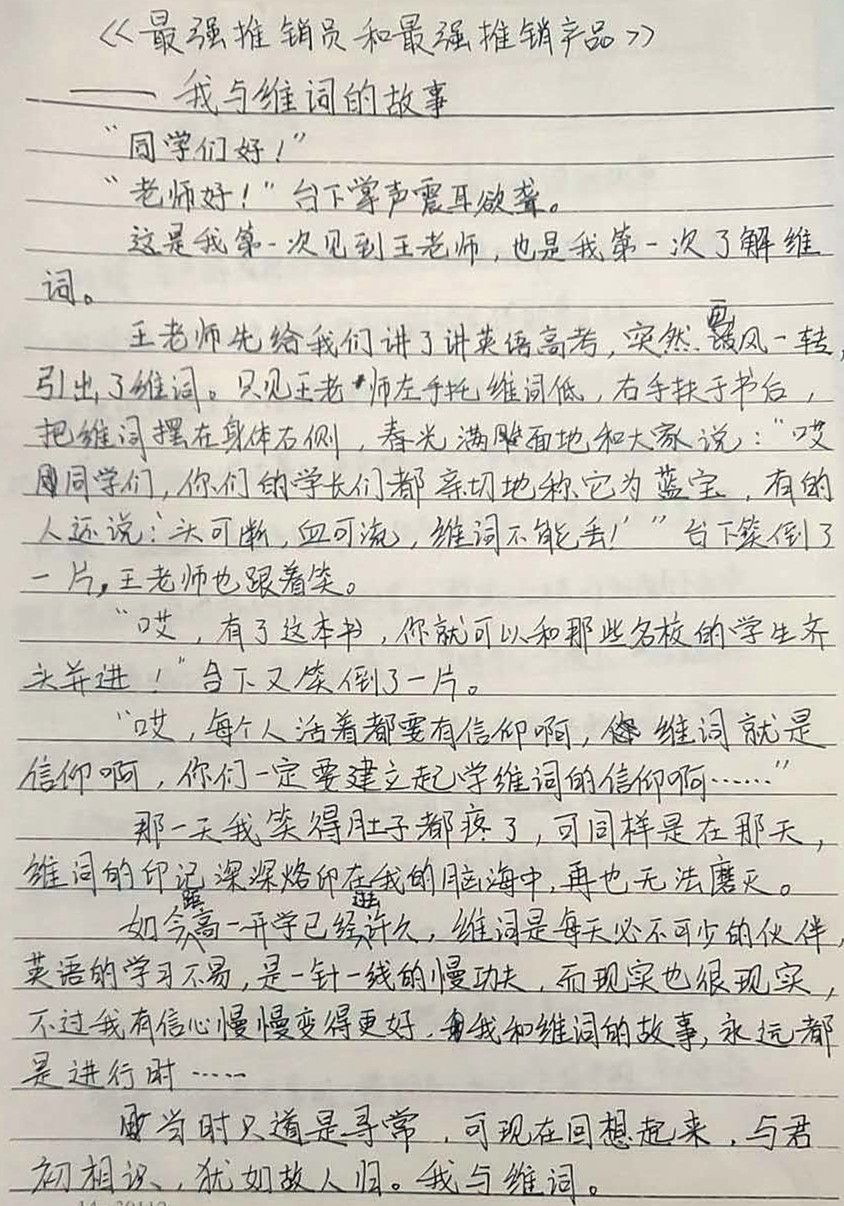 《最强推销员和最强推销产品》
——我与维词的故事
“同学们好！”
“老师好！”台下掌声震耳欲聋。
这是我第一次见到王老师，也是我第一次了解维
词。
王老师先给我们讲了讲英语高考，突然画风一转，
引出了维词。只见王老师左手托维词低，右手扶于书后，
把维词摆在身体右侧，春光满面地和大家说：“哎
同学们，你们的学长们都亲切地称它为蓝宝，有的
人还说：‘头可断，血可流，维词不能丢！’”台下笑倒了
一片，王老师也跟着笑。
“哎，有了这本书，你就可以和那些名校的学生齐
头并进！”台下又笑倒了一片。
“哎，每个人活着都要有信仰啊，维词就是
信仰啊，你们一定要建立起学维词的信仰啊……”
那一天我笑得肚子都疼了，可同样是在那天，
维词的印记深深烙印在我的脑海中，再也无法磨灭。
如今距高一开学已经过去许久，维词是每天必不可少的伙伴，
英语的学习不易，是一针一线的慢功夫，而现实也很现实，
不过我有信心慢慢变得更好，我和维词的故事，永远都
是进行时……
当时只道是寻常，可现在回想起来，与君
初相识，犹如故人归。我与维词。